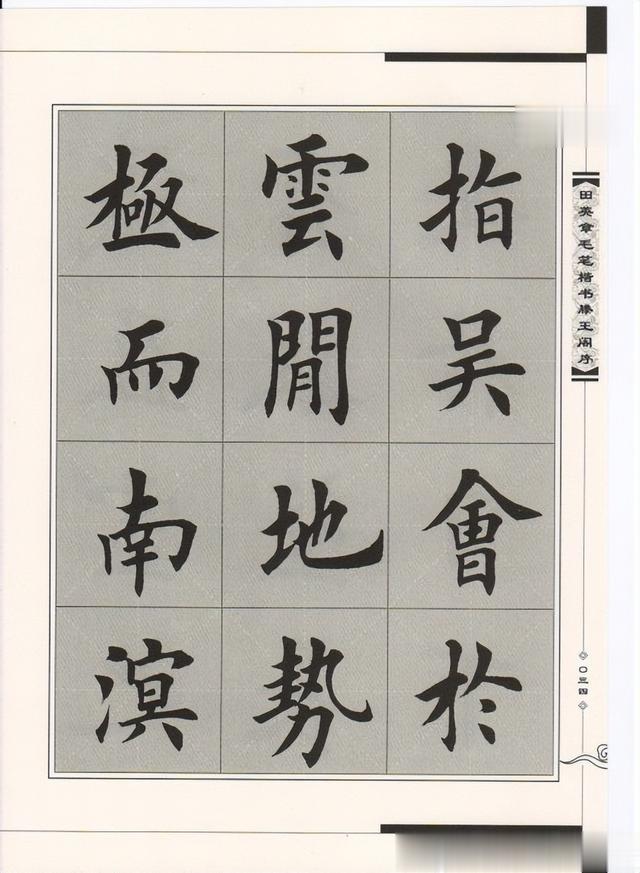 指吳會於
雲間地勢
極而南溟
田英章毛笔楷书滕王阁序
〇三四